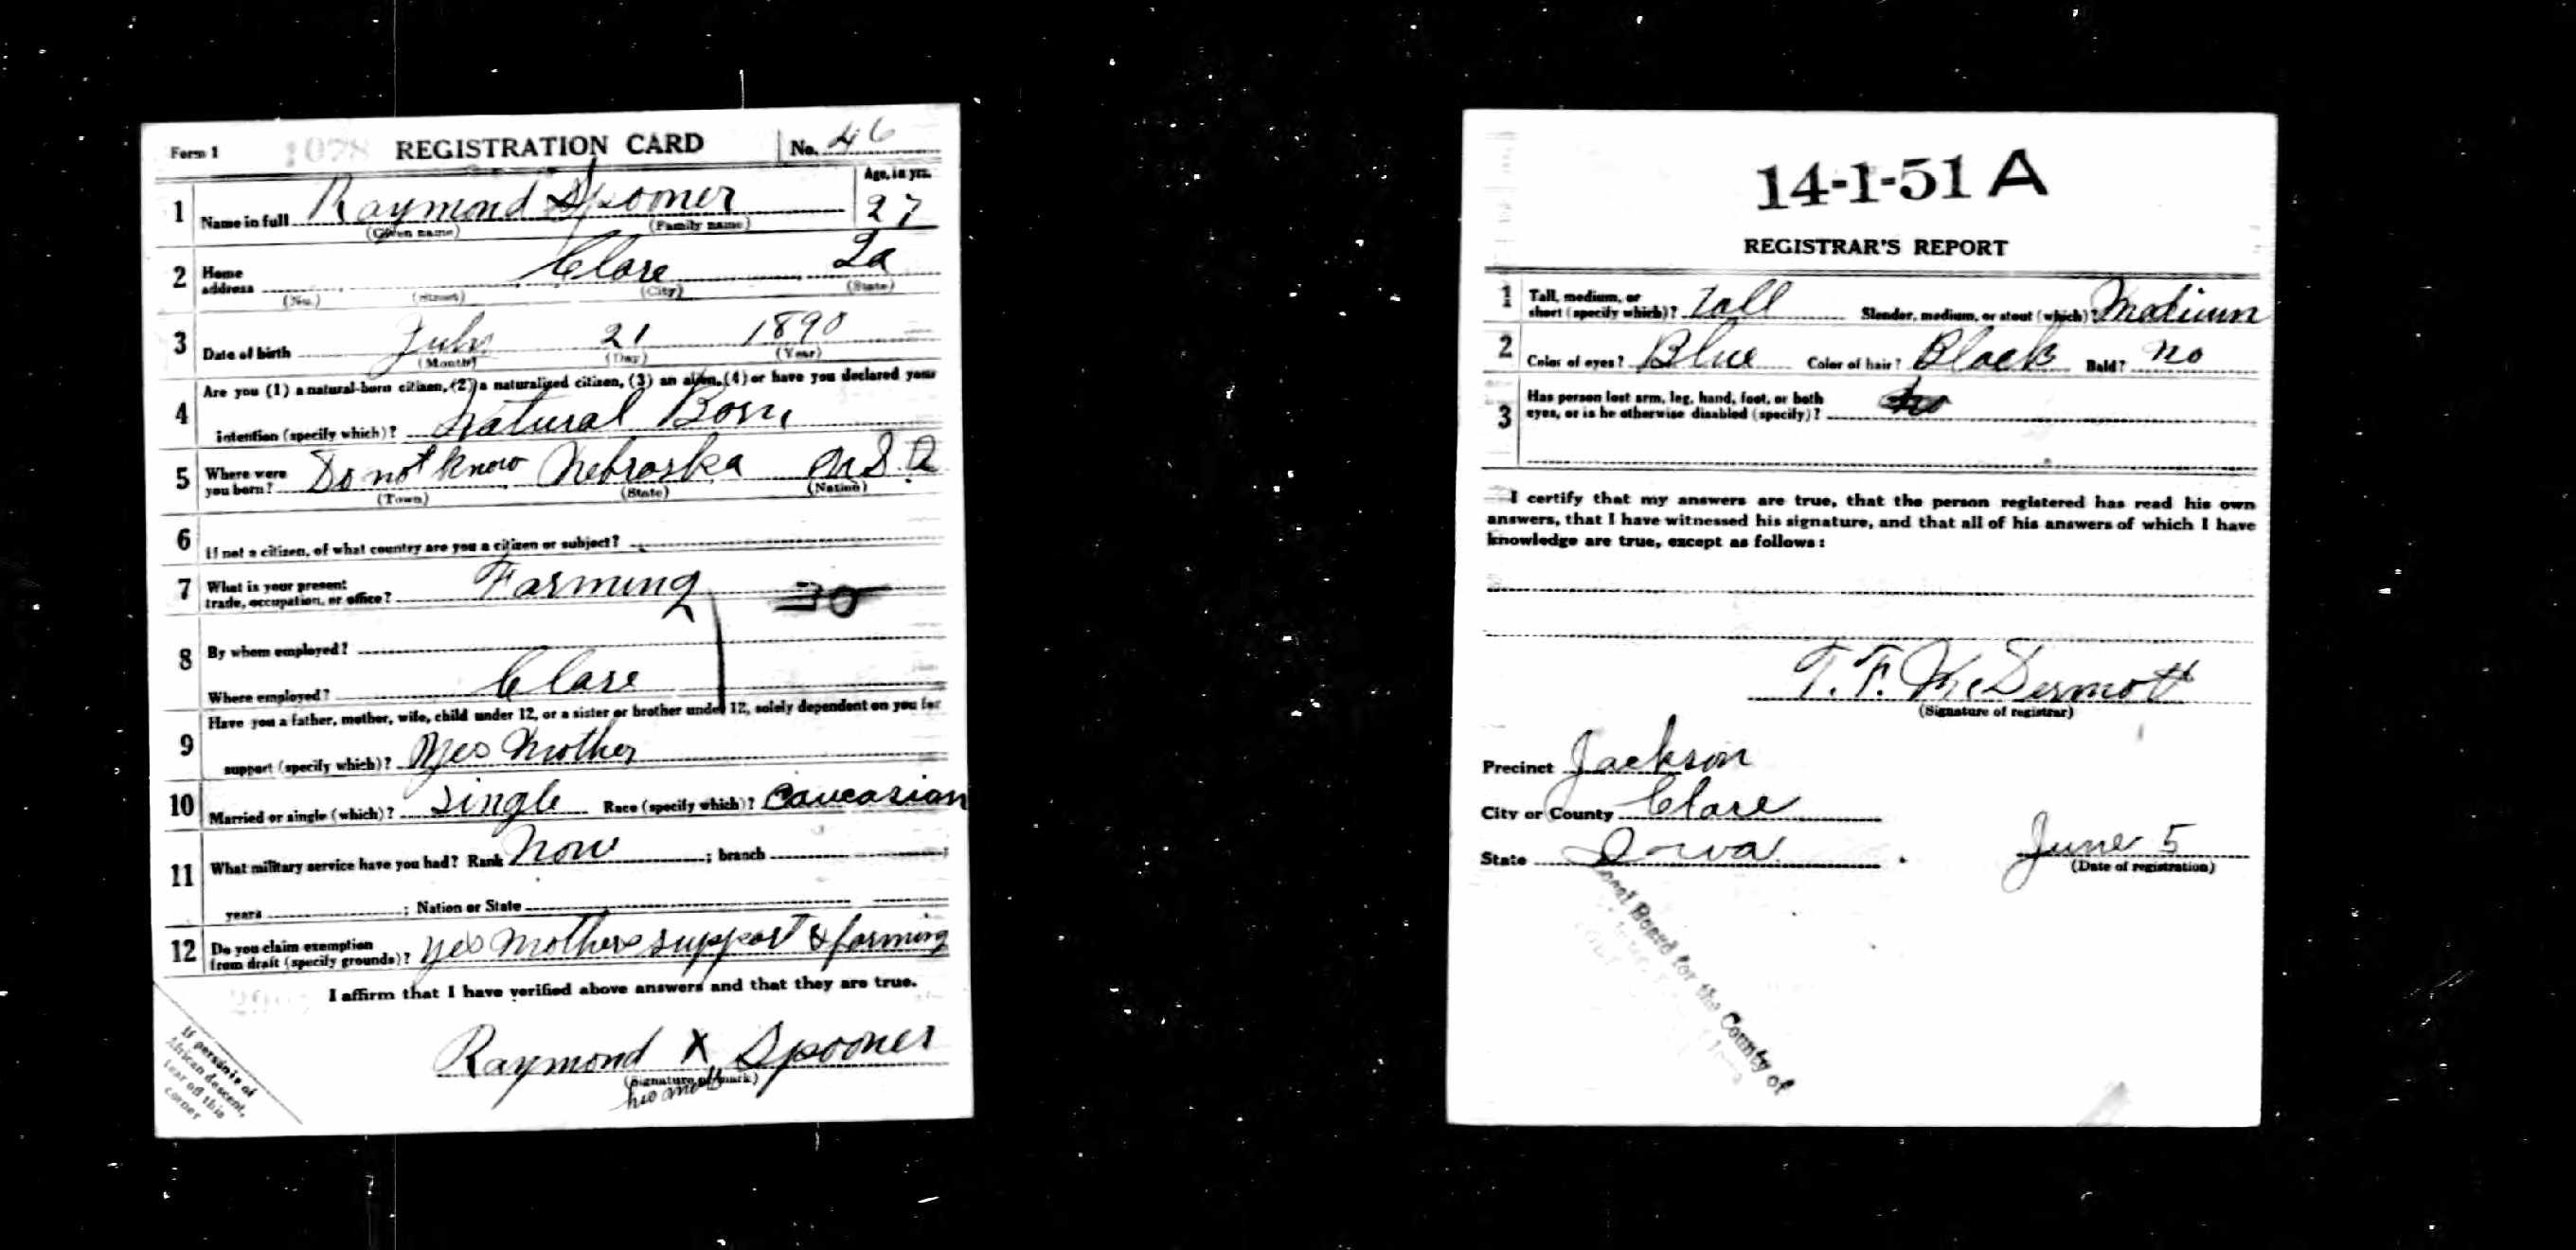 Form 1 1078 REGISTRATION CARD No. 46
Age, in yrs.
1 Name in full Raymond Spooner 27
(Given name) (Family name)
2 Home address Clare Ia
(No.) (Street) (City) (State)
3 Date of birth July 21 1890
(Month) (Day) (Year)
Are you (1) a natural-born citizen, (2) a naturalized citizen, (3) an alien, (4) or have you declared your
4 intention (specify which)? Natural Born
5 Where were you born? Do not know Nebraska U S A
(Town) (State) (Nation)
6 If not a citizen, of what country are you a citizen or subject?
7 What is your present trade, occupation, or office? Farming 30
8 By whom employed?
Where employed? Clare
Have you a father, mother, wife, child under 12, or a sister or brother under 12, solely dependent on you for
9 support (specify which)? Yes Mother
10 Married or single (which)? Single Race (specify which)? Caucasian
11 What military service have you had? Rank Non ; branch ;
years ; Nation or State
12 Do you claim exemption from draft (specify grounds)? Yes Mothers support & farming
I affirm that I have verified above answers and that they are true.
Raymond X Spooner
(Signature or mark)
his mark
If person is of
African descent,
tear off this
corner
14-1-51 A
REGISTRAR'S REPORT
1 Tall, medium, or short (specify which)? Tall Slender, medium, or stout (which)? Medium
2 Color of eyes? Blue Color of hair? Black Bald? No
3 Has person lost arm, leg, hand, foot, or both
eyes, or is he otherwise disabled (specify)? No
I certify that my answers are true, that the person registered has read his own
answers, that I have witnessed his signature, and that all of his answers of which I have
knowledge are true, except as follows:
T. F. McDermott
(Signature of registrar)
Precinct Jackson
City or County Clare
State Iowa June 5
(Date of registration)
Local Board for the County of